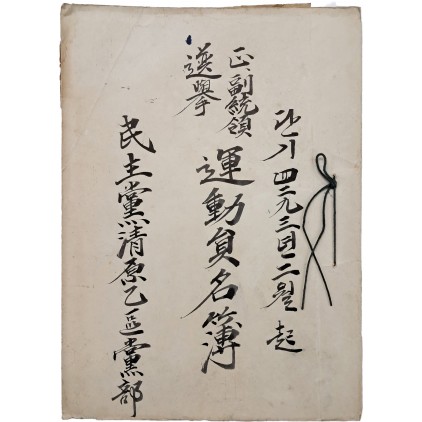 단기四二九三년二월起
正、副統領
選擧
運動員名簿
民主黨清原乙區黨部